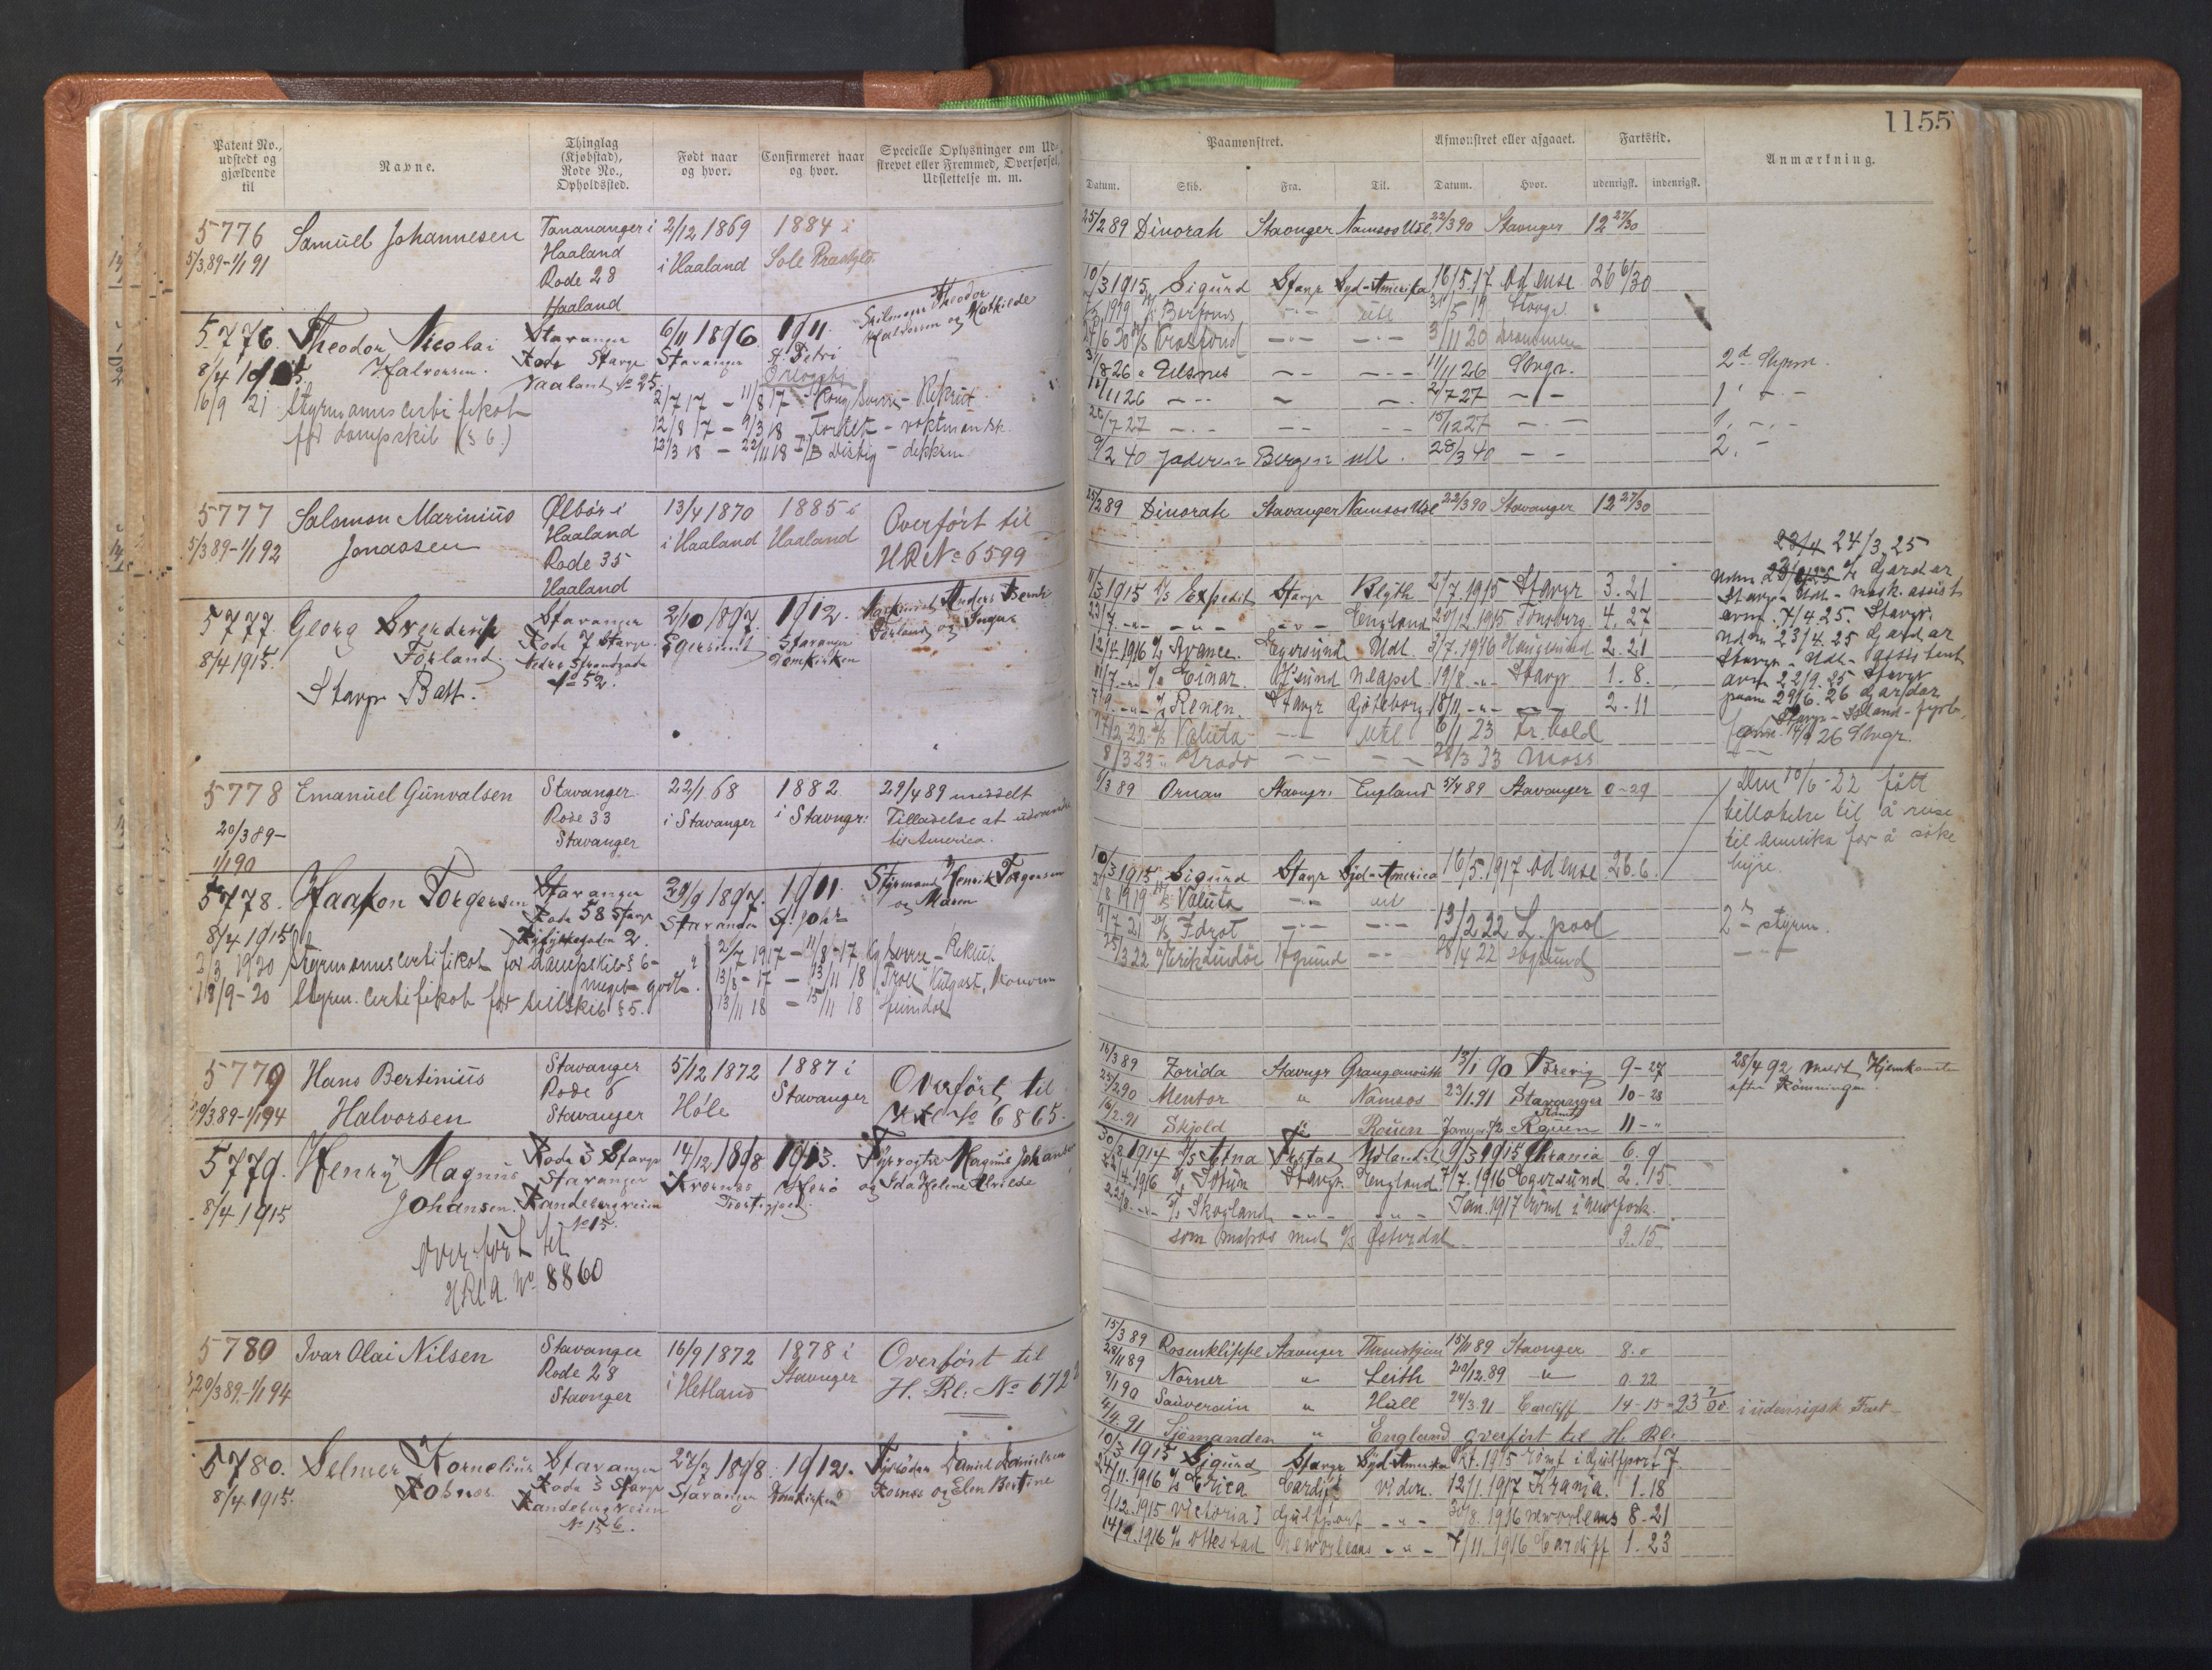 1155
Patent No., udstedt og gjældende til
Navne.
Thinglag (Kjøbstad), Rode No., Opholdssted.
Født naar og hvor.
Confirmeret naar og hvor.
Specielle Oplysninger om Udskrevet eller Fremmed, Overførsel, Udslettelse m. m.
Paamønstret.
Afmønstret eller afgaaet.
Fartstid.
Anmærkning.
Datum. Skib. Fra. Til. Datum. Hvor. udenrigsk. indenrigsk.
5776 Samuel Johannesen Tananger i 2/12 1869 1884 i
5/3 89-1/1 91 Haaland i Haaland Sole
Rode 28
Haaland
25/2 89 Dinorah Stavanger Namsos Udl. 22/3 90 Stavanger 12 27/30
5776. Theodor Nicolai Stavanger 6/11 1896. 1911.
8/4 1915. Halvorsen. Rode Stavgr Stavanger St. Petri
Vaaland No 25.
16/9 21 Styrmannscertifikat
for dampskib (§ 6.)
2/7 17 - 11/8 17 Kong Sverre - Rekrut
12/8 17 - 9/3 18 - vaktmandsk.
12/3 18 - 22/11 18
10/3 1915. Sigurd Stavgr Syd-Amerika 16/5.17 Odense 26 6/30
Utl
27/6 20 3/11 20 Drammen
31/8 26 Elsnes 11/11 26 Stvgr. 2d Styrm.
11/11 26 2/7 27 1
26/7 27 15/12 27 1.
9/2 40 Jaderen Bergen utl. 28/3 40 2.
5777 Salomon Marinius Ølbør i 13/4 1870 1885 i Overført til
5/3 89-1/1 92 Jonassen Haaland i Haaland Haaland HR No 6599
Rode 35
Haaland
25/2 89 Dinorah Stavanger Namsos Udl 22/3 90 Stavanger 12 27/30
5777. Georg Sverdrup Stavanger 2/10 1897. 1912. Maskinist Anders Bernh.
8/4 1915. Førland. Rode 7 Stavgr. Egersund Stavanger Førland og Inga
Nedre Strandgade Domkirken
No 52.
Stavgr Batt.
11/3 1915 Expedit Stavgr Blyth 2/7.1915 Stavgr 3.21
23/7 England 20/12 1915 Tønsberg 4.27
12/4 1916 Avance. Egersund Udl. 3/7.1916 Haugesund 2.21
11/7 Einar. Neapel 19/8 Stavgr 1.8.
7/9 Renen. Stavgr Göteborg 18/11 2-11
22 Valuta utl 6/11 23 Fr.hald
8/3 23 28/3 23 Moss
24/3.25
Gjardar
Stavgr - Udl - mask.assist
avm. 7/4.25. Stavgr.
23/4.25 Gjardar
Stavgr - Udl - assistent
avm 22/9.25 Stavgr
paam 29/6.26 Gjardar
Stavgr - fyrb.
26 Stvgr.
5778 Emanuel Gunvalsen Stavanger 22/1 68 1882 29/4 89 meddelt
20/3 89- Rode 33 i Stavanger i Stavngr: Tilladelse at udvandre
1/1 90 Stavanger til America.
9/3 89 Ornan Stavngr: England 5/4 89 Stavanger 0-29
5778. Haakon Torgersen Stavanger 29/9 1897. 1911. Styrmand Henrik Torgersen
8/4 1915 Rode 58 Stavgr Stavanger St. Joh: og Maren
Ryfylkegaden 2.
2/3 1920 Styrmannscertifikat for dampskib § 6
meget godt.
18/9-20 Styrm. certifikat for seilskib § 5.
2/7 1917 - 11/8-17 Kg Sverre - Rekrut
13/8-17 - 13/11 18 "Troll"
13/11 18 - 15/11 18
10/3 1915 Sigurd Stavgr Syd-America 16/5.1917 Odense 26.6.
1919 Valuta utl
9/7 21 Idræt 13/2 22 L.pool 2 styrm.
25/3 22 Erik Lindøe 28/4 22
Den 10/6-22 fått
tillatelse til å reise
til Amerika for å søke
hyre.
5779 Hans Bertinius Stavanger 5/12 1872 1887 i Overført til
20/3 89-1/1 94 Halvorsen Rode 6 Høle Stavanger HRl No 6865.
Stavanger
16/3 89 Zorida Stavngr Grangemouth 13/1 90 Brevig 9-27 28/4 92 meldt Hjemkomst
efter Rømningen
25/2 90 Mentor " Namsos 23/1.91 Stavanger 10-28
16/2.91 Skjold " Rouen Rouen 11-"
5779. Henry Magnus Rode 3 Stavgr 14/12 1898 1913. Fyrvogter Magnus Johansen
8/4.1915 Johansen. Stavanger og Ida Helene Alvilde
Randebergveien
No 15.
Overført til
HRl.A. No 8860
1914 Ætna Udlandet 9/3 1915 Chrania 6.9
1916 Stavgr. England. 7/7.1916 Egersund 2.15.
Skogland Jan. 1917 rømt i Newyork.
som matros med Østerdal 3.15
5780 Ivar Olai Nilsen Stavanger 16/9 1872 1878 i Overført til
20/3 89-1/1 94 Rode 28 i Hetland Stavnger H. Rl. No 672
Stavnger
15/3 89 Rosenklippe Stavnger Throndhjem 15/11 89 Stavnger 8.0
28/11 89 Norner " Leith 20/12.89 " 0.22
9/1 90 Sauverain " Hull 24/3.91 Cardiff 14-15=23 i udenrigsk Fart
4/4.91 Sjømanden " England overført til H. Rl.
5780. Selmer Kornelius Stavanger 28/7 1898. 1912. Daniel Danielsen
8/4.1915. Rosnes Rode 3 Stavgr Stavanger Domkirken Rosnes og Elen Bertine
Randebergveien
No 15 6.
10/3 1915 Sigurd Stavgr Syd-Amerika Okt. 1915 rømt i Gulfport 7.
24/11.1916 Erica Cardiff viden. 12/1.1917 Krania. 1.18
9/12.1915 Victoria I Gulfport 30/8.1916 neworleans 8-21
14/9.1916 Ottestad neworleans 7/11.1916 Cardiff 1.23